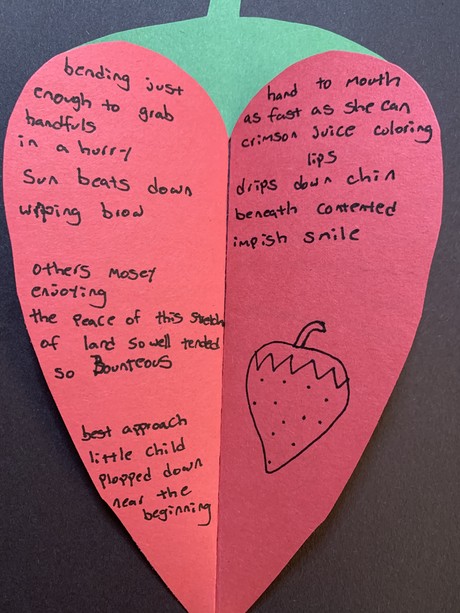 bending just
enough to grab
handfuls
in a hurry
Sun beats down
wiping brow
others mosey
enjoying
the peace of this stretch
of land so well tended
so Bounteous
best approach
little child
plopped down
near the
beginning
hand to mouth
as fast as she can
crimson juice coloring
lips
drips down chin
beneath contented
impish smile